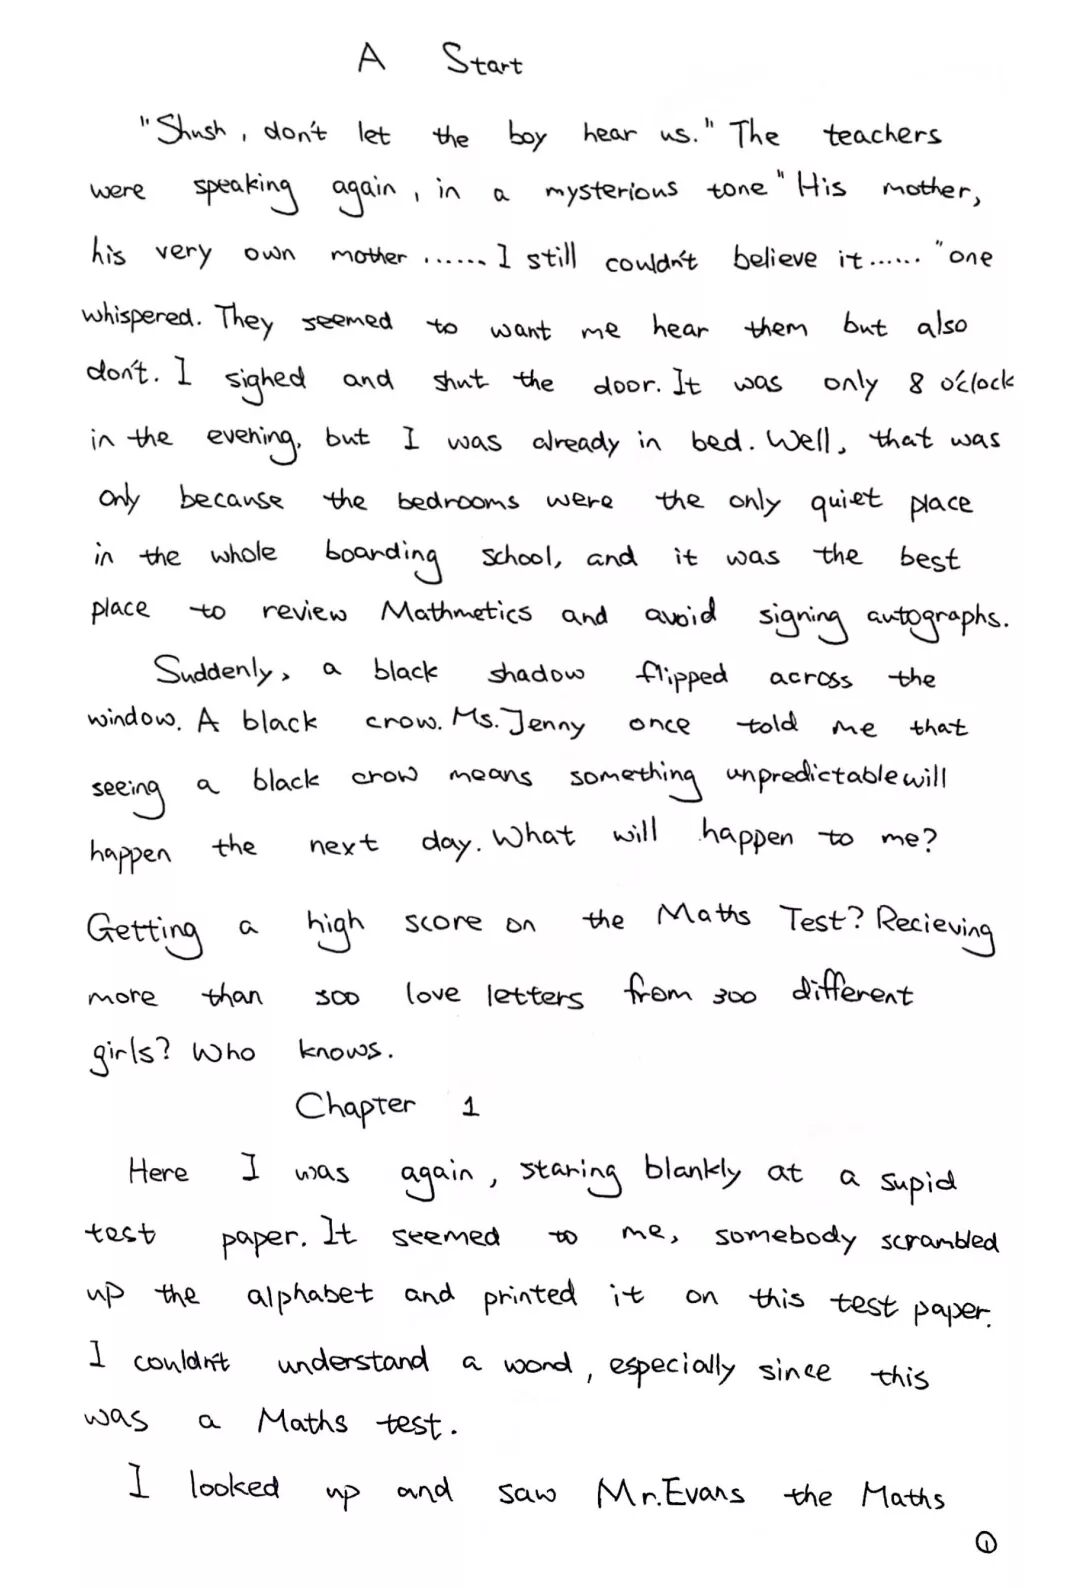 A Start
"Shush, don't let the boy hear us." The teachers
were speaking again, in a mysterious tone "His mother,
his very own mother ...... I still couldn't believe it ...... "one
whispered. They seemed to want me hear them but also
don't. I sighed and shut the door. It was only 8 o'clock
in the evening, but I was already in bed. Well, that was
only because the bedrooms were the only quiet place
in the whole boarding school, and it was the best
place to review Mathmetics and avoid signing autographs.
Suddenly, a black shadow flipped across the
window. A black crow. Ms. Jenny once told me that
seeing a black crow means something unpredictable will
happen the next day. What will happen to me?
Getting a high score on the Maths Test? Recieving
more than 300 love letters from 300 different
girls? Who knows.
Chapter 1
Here I was again, staring blankly at a supid
test paper. It seemed to me, somebody scrambled
up the alphabet and printed it on this test paper.
I couldn't understand a word, especially since this
was a Maths test.
I looked up and saw Mr. Evans the Maths
①